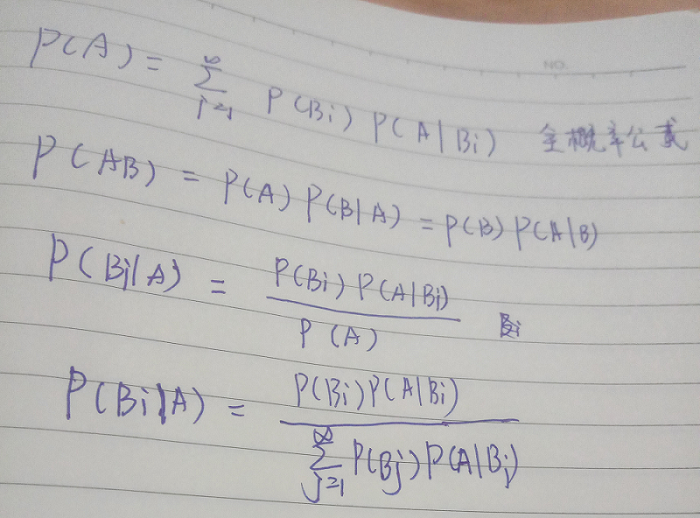 NO.
P(A) = ∑_{i=1}^{∞} P(Bi) P(A|Bi) 全概率公式
P(AB) = P(A) P(B|A) = P(B) P(A|B)
P(Bi|A) = P(Bi) P(A|Bi) / P(A) Bi
P(Bi|A) = P(Bi) P(A|Bi) / ∑_{j=1}^{∞} P(Bj) P(A|Bj)